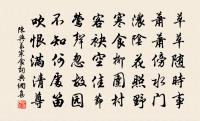 草草隨時事
蕭蕭傍水門
濃陰花照野
寒食柳圍村
客袂空佳節
鶯聲忽故園
不知何處笛
吹恨滿清尊
陳與義寒食詞典網